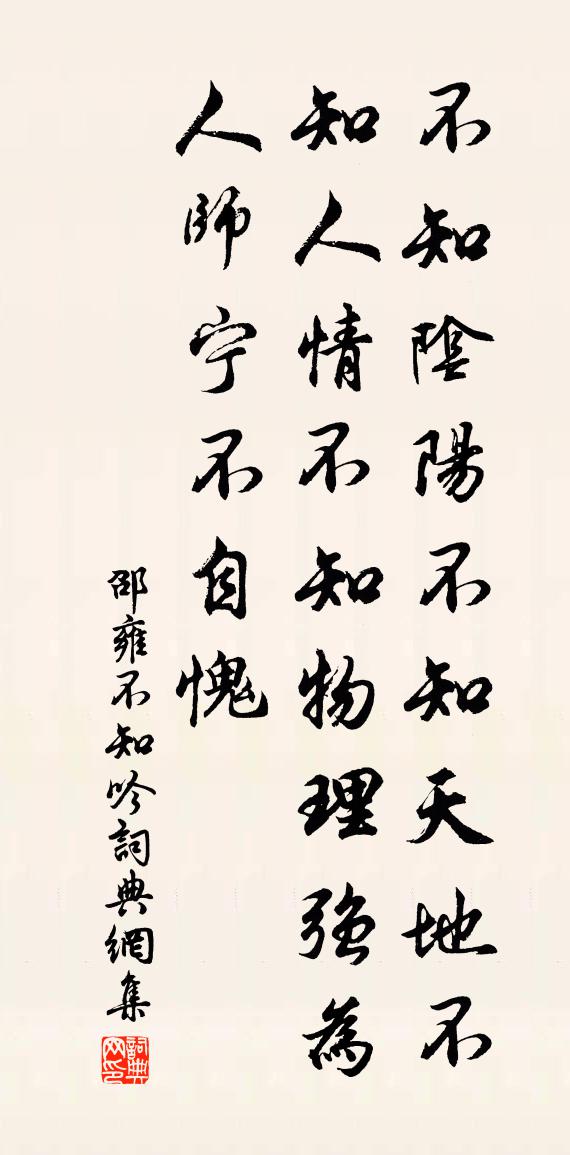 不知陰陽不知天地不
知人情不知物理強為
人師宁不自愧
邵雍不知吟詞典網集
詞典网印